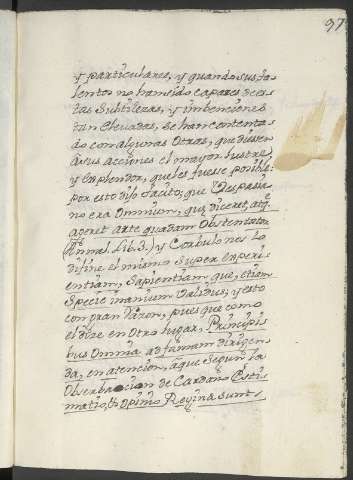 97
y particulares, y quando sus ta-
lentos no han sido capaces de es-
tas subtilezas, y imbenciones
tan elevadas, se han contenta-
do con algunas otras, que diessen
à sus acciones el mayor lustre,
y esplendor, que les fuesse posible:
por esto dijo Tacito; que Vespasia-
no era Omnium, que diceret, atq.
ageret arte quadam Obstentator
Annal. Lib. 3.) y Corbulones lo
difine el mismo Super experi-
entiam, Sapientiamque, etiam
Specie inanium Validus; y esto
con gran razon, pues que como
el dize en otro lugar, Principi-
bus Omnia ad famam dirigen-
da, en atencion, àque segun la
Observacion de Cardano Esti-
matio, & Opinio Regina sunt